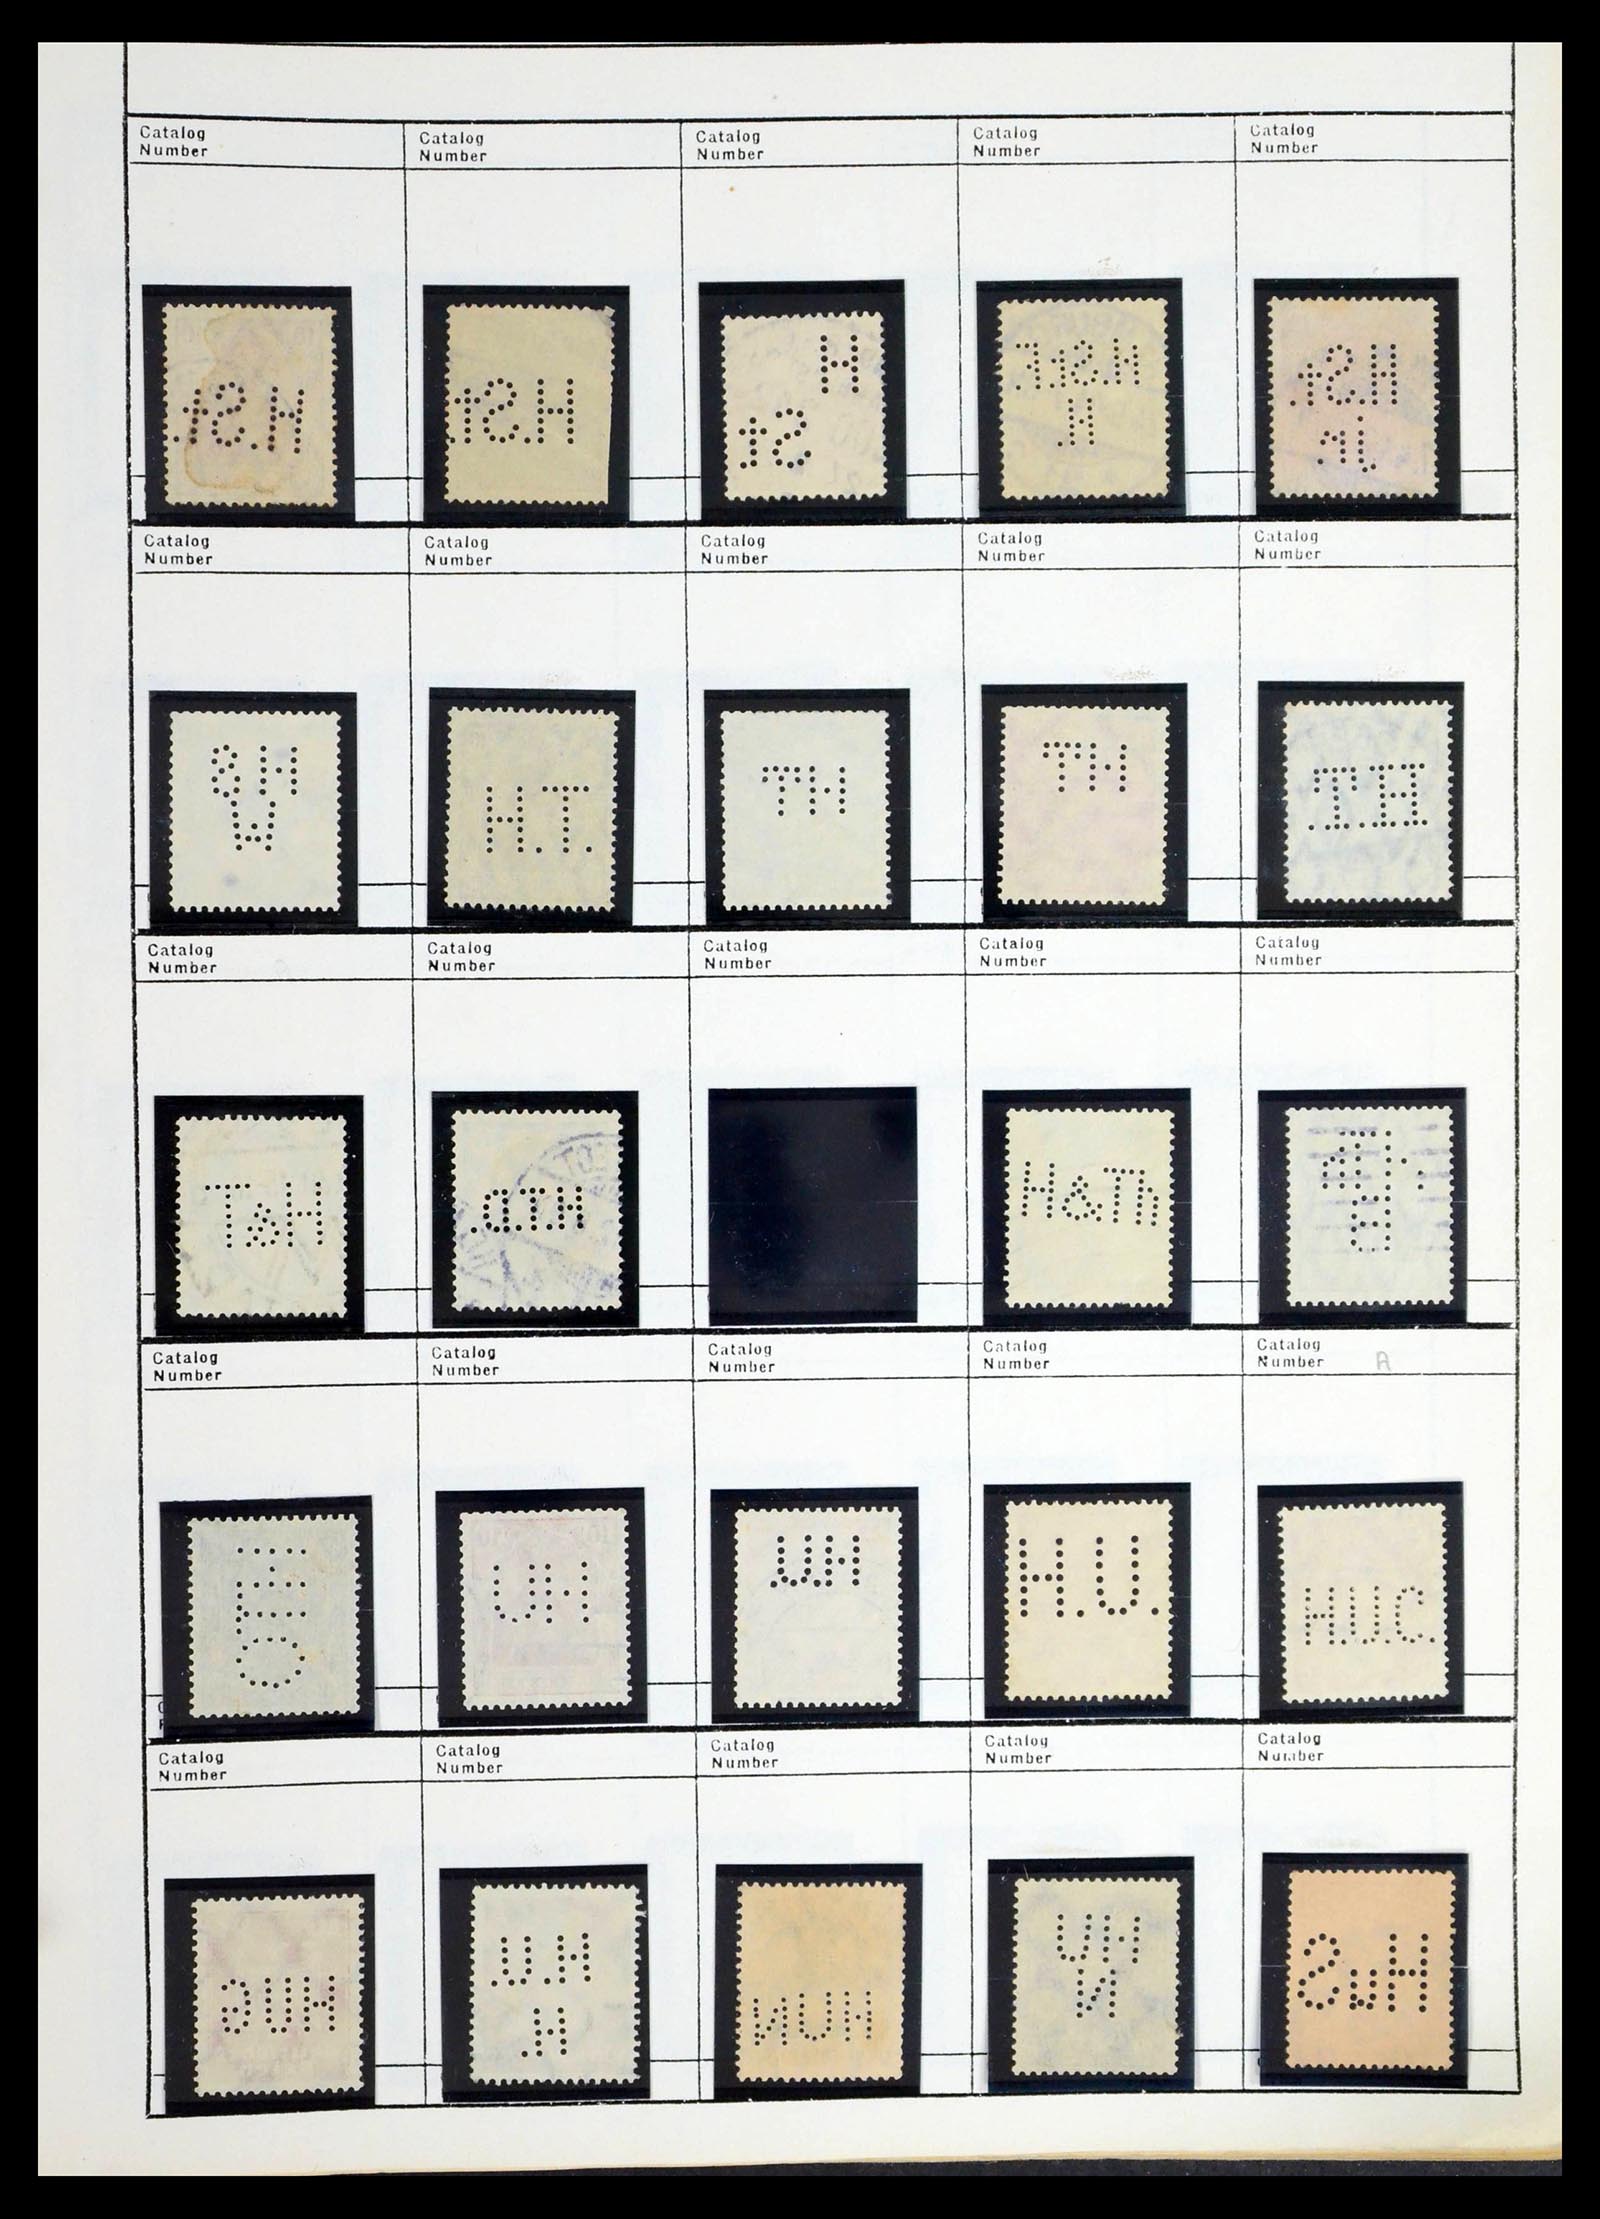 Catalog Number
Catalog Number
Catalog Number
Catalog Number
Catalog Number
H.St.
H.St.
H
St.
H.St.F.
H.
H.St.
Jr
Catalog Number
Catalog Number
Catalog Number
Catalog Number
Catalog Number
H&
W
H.T.
TH
TH
T.H.
Catalog Number
Catalog Number
Catalog Number
Catalog Number
Catalog Number
T&H
H.T.D.
H&Th
Catalog Number
Catalog Number
Catalog Number
Catalog Number
Catalog Number A
HTC
UH
H.U.
H.U.
H.U.C.
Catalog Number
Catalog Number
Catalog Number
Catalog Number
Catalog Number
HUG
H.U.
H.
HUN
HU
N
HuS